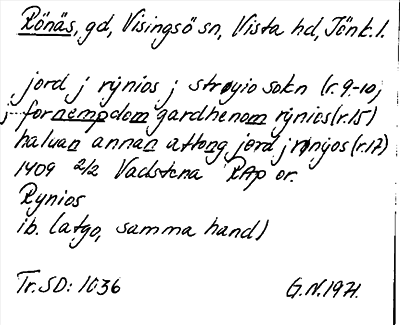 Rönäs, gd, Visingsö sn, Vista hd, Jönk. l.
jord j rýnios j strøyio sokn (r. 9-10)
j fornempdom gardhenom rýnios (r. 15)
haluan annan attong jord j rønyos (r. 17)
1409 2/2 Vadstena RAp or.
Rynios
ib. (atgo, samma hand)
Tr. SD: 1036 G.N. 1971.